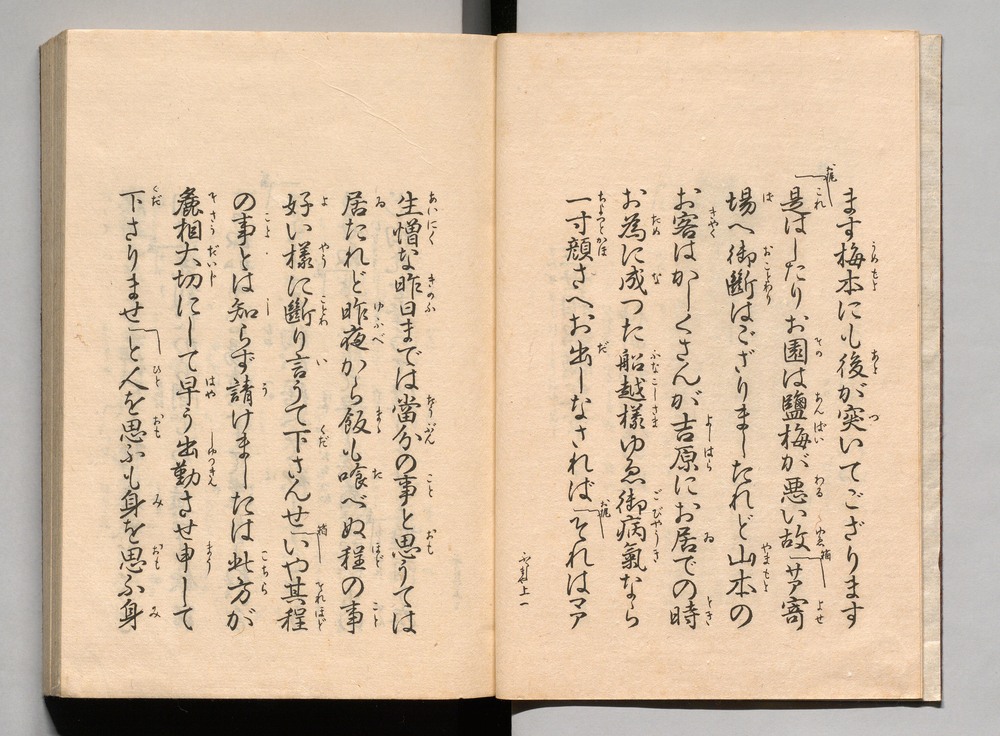 ます梅本にも後が突いてござります
是はしたりお園は鹽梅が悪い故「サア寄
場へ御斷はござりましたれど山本の
お客はかしくさんが吉原にお居での時
お為に成つた船越様ゆゑ御病氣なら
一寸顔さへお出しなされば「それはマア
生憎な昨日までは當分の事と思うては
居たれど昨夜から飯も喰べぬ程の事
好い様に斷り言うて下さんせ「いや其程
の事とは知らず請けましたは此方が
麁相大切にして早う出勤させ申して
下さりませ」と人を思ふも身を思ふ身